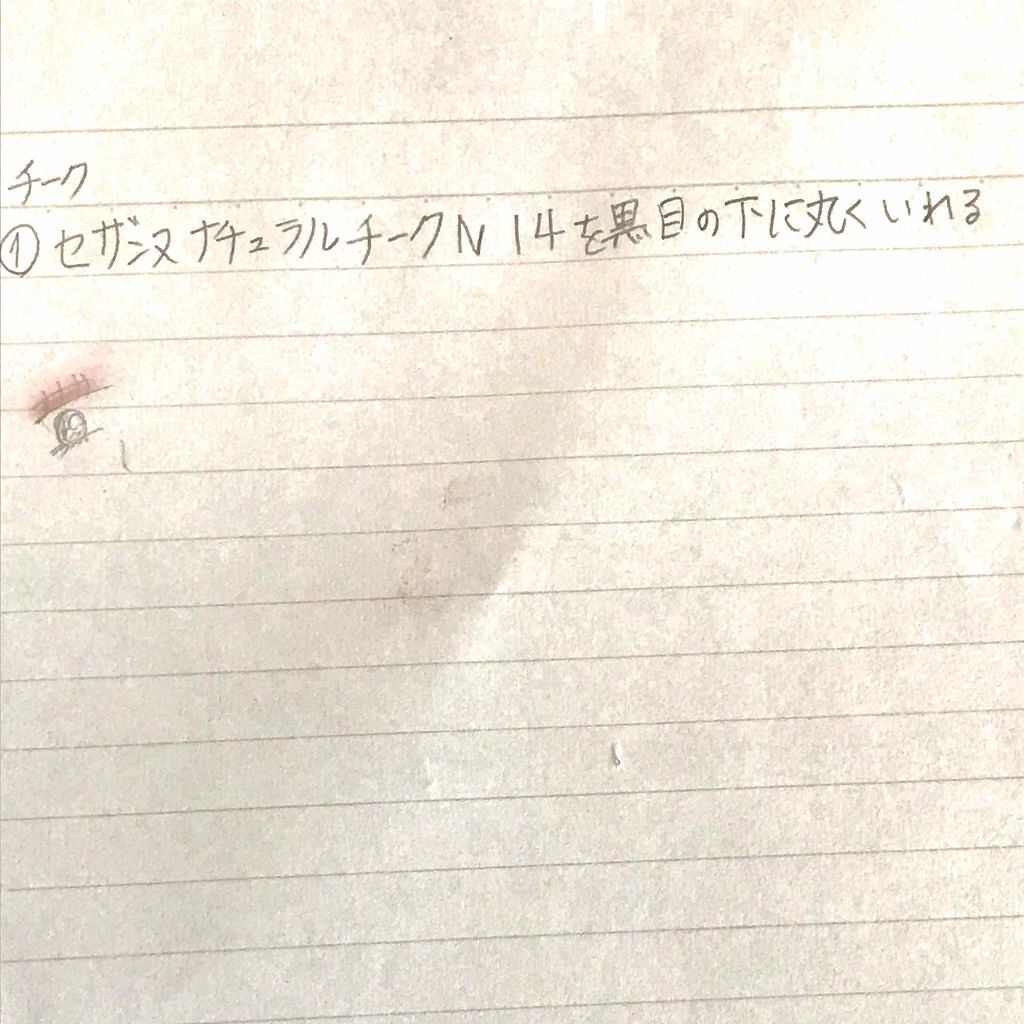 チーク
①セザンヌナチュラルチークN 14を黒目の下に丸くいれる